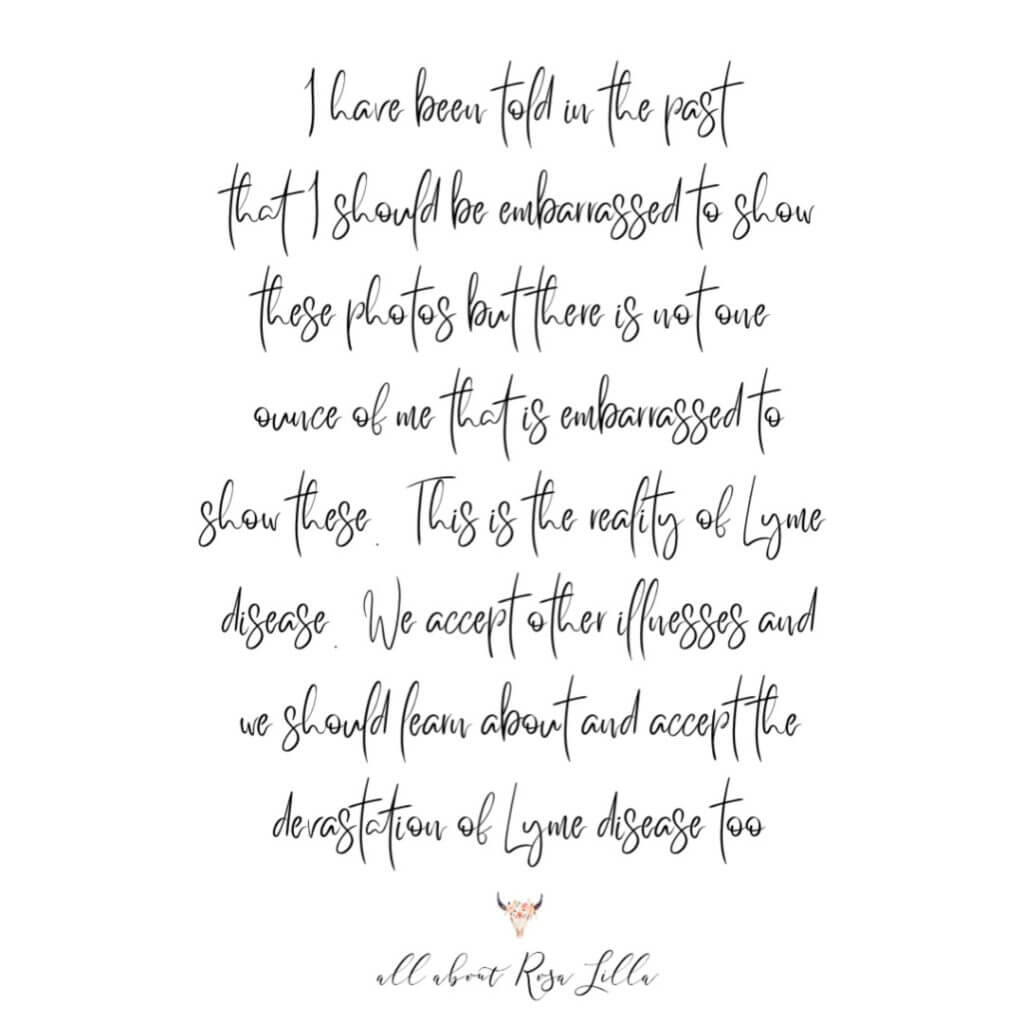 I have been told in the past
that I should be embarrassed to show
these photos but there is not one
ounce of me that is embarrassed to
show these. This is the reality of Lyme
disease. We accept other illnesses and
we should learn about and accept the
devastation of Lyme disease too
all about Rosa Lilla